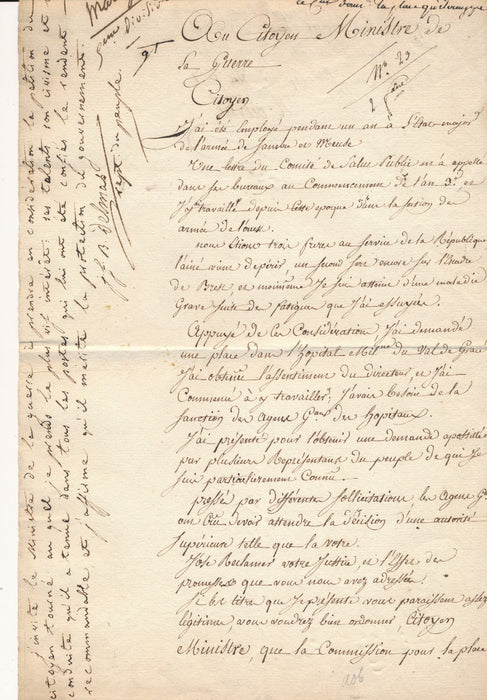 Au Citoyen Ministre de
la Guerre
N° 23
Citoyen
J'ai été Employé pendant un an à l'Etat-major
de l'armée de Sambre et Meuse
Une lettre du Comité de Salut Public m'a appellé
dans ses bureaux au Commencement de l'an 3e. et
J'y travaillé depuis cette époque dans la section des
armée de l'ouest.
nous étions trois frères au service de la République
l'ainé vient de périr, un second sert encore sur l'Escadre
de Brest, et moi même je suis atteins d'une maladie
Grave suite de fatigues que J'ai essuyées.
Appuyé de ces Considération J'ai demandé
une place dans l'hopital Militre du Val de Grace
J'ai obtenu l'assentiment du directeur, et J'ai
Commencé à y travailler; J'avais besoin de la
sanction des agens Gaux des hopitaux.
J'ai présenté pour l'obtenir une demande apostillée
par plusieurs Représentans du peuple de qui je
suis particulièrement Connu.
pressés par différentes sollicitations les agens Gx
ont Cru devoir attendre la décision d'une autorité
supérieure telle que la votre.
J'ose Reclamer votre Justice, et l'Effet des
promesses que vous nous avez adressées.
Si les titres que Je présente vous paraissent assez
légitimes, vous voudrez bien ordonner, Citoyen
Ministre, que la Commission pour la place
j'invite le Ministre de la guerre à prendre en considération la pétition du
citoyen au quel je prends le plus vif interet: ses talents son civisme et sa
conduite qu'il a tenue dans tous les postes qui lui ont été confiés le rendent
recommandable et j'affirme qu'il mérite la protection du gouvernement.
J. B. Delmas
rept du peuple